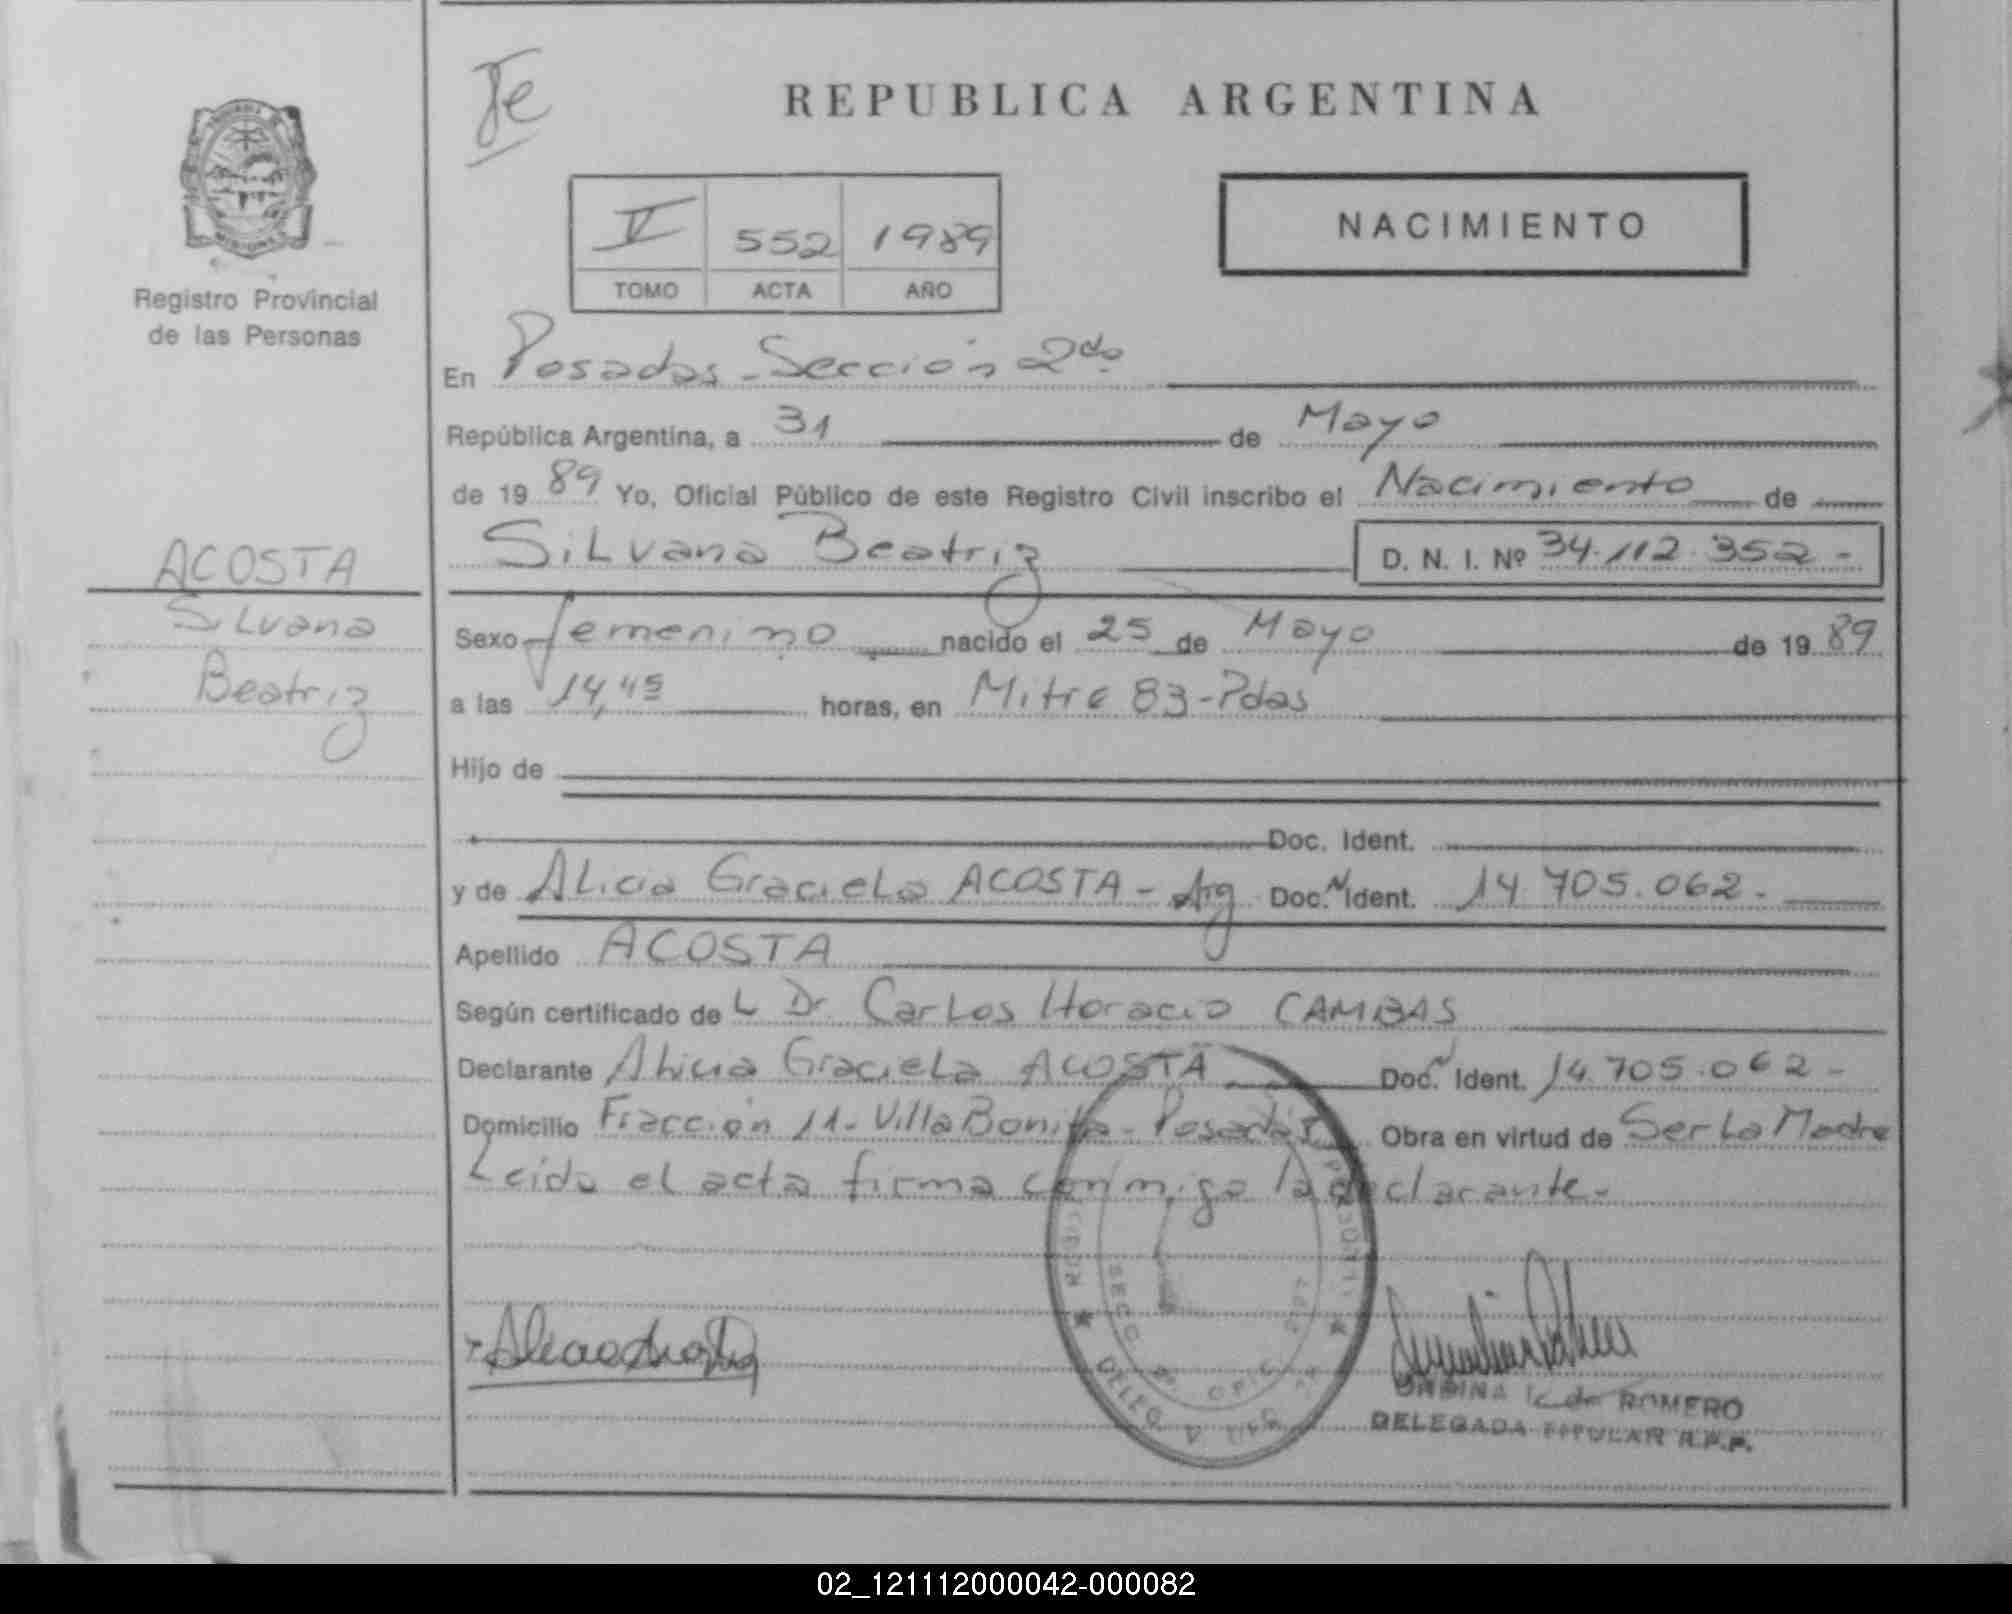 Je
REPUBLICA ARGENTINA
V 552 1989
TOMO ACTA AÑO
NACIMIENTO
Registro Provincial
de las Personas
En Posadas - Sección 2da
República Argentina, a 31 de Mayo
de 19 89 Yo, Oficial Público de este Registro Civil inscribo el Nacimiento de
Silvana Beatriz D. N. I. Nº 34.112.352-
ACOSTA
Silvana
Beatriz
Sexo femenino nacido el 25 de Mayo de 19 89
a las 14,45 horas, en Mitre 83-Pdas
Hijo de
Doc. Ident.
y de Alicia Graciela ACOSTA - Arg Doc. N Ident. 14.705.062.-
Apellido ACOSTA
Según certificado de L Dr. Carlos Horacio CAMBAS
Declarante Alicia Graciela ACOSTA Doc. N Ident. 14.705.062-
Domicilio Fracción 11- Villa Bonita - Posadas Obra en virtud de Ser La Madre
Leida el acta firma conmigo la declarante.-
de ROMERO
DELEGADA TITULAR R.P.P.
02_121112000042-000082